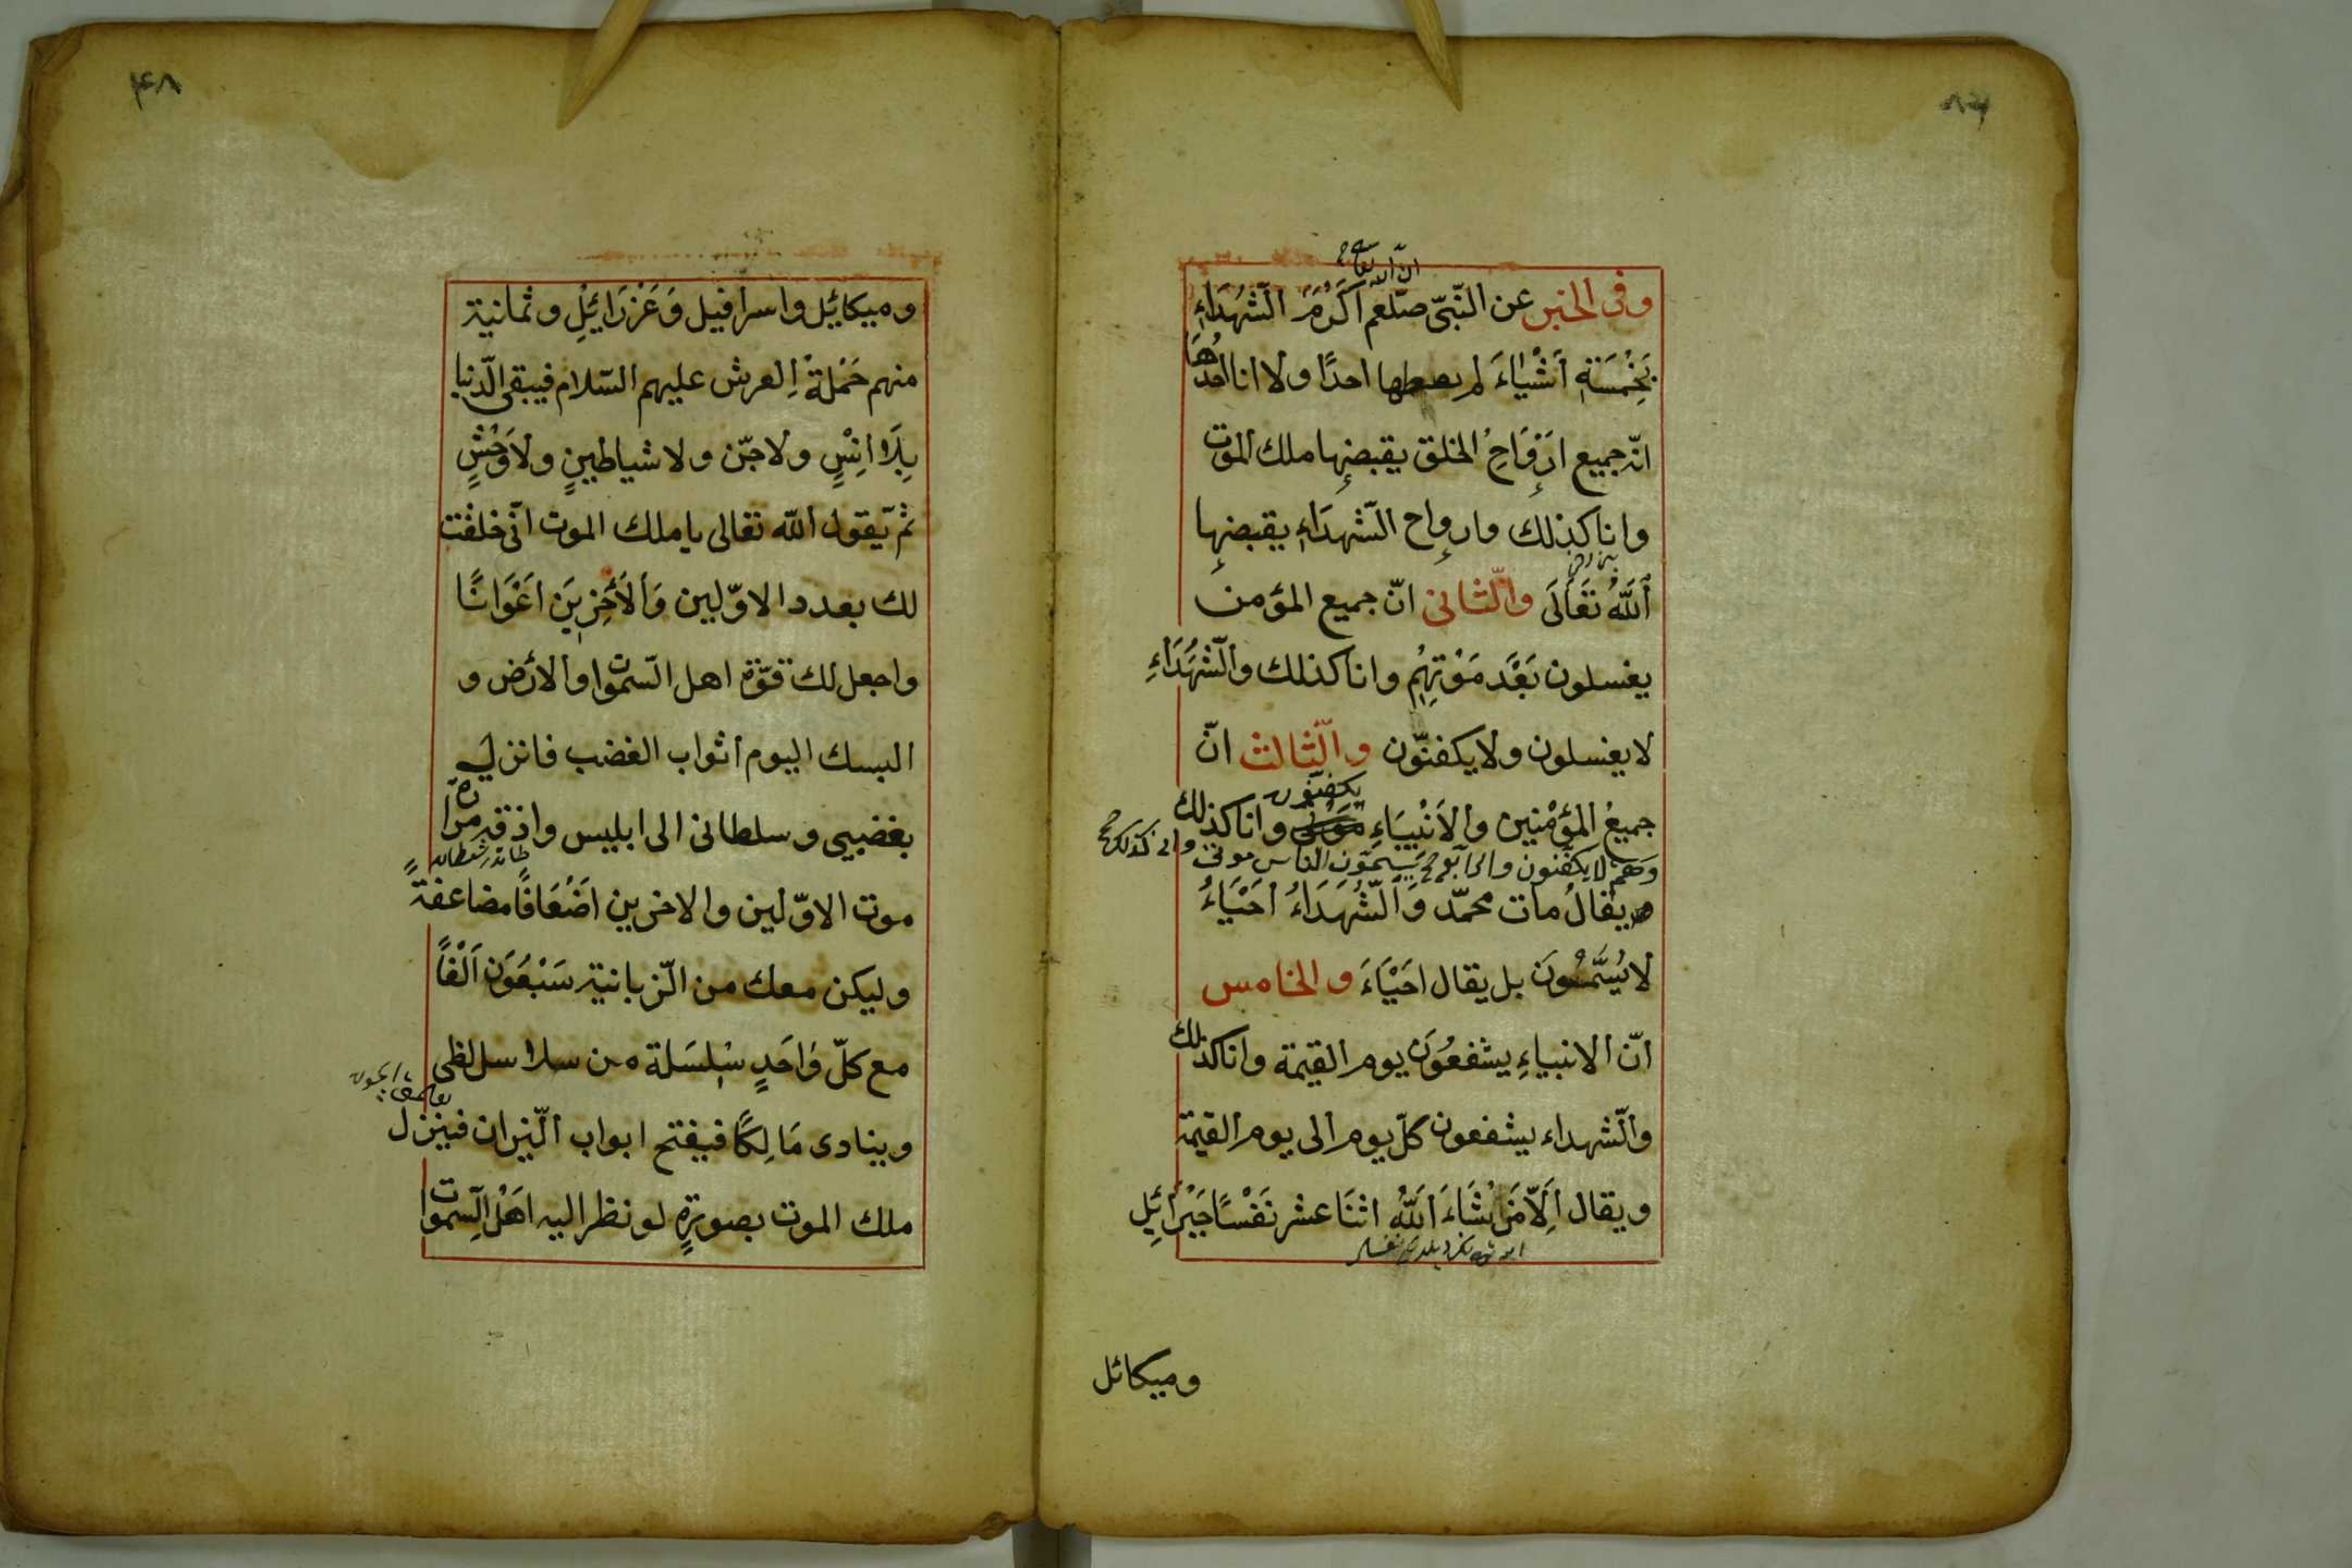 ان الله تعالى
وفى الخبر عن النّبىّ صلّعم اَكْرَمَ الشّهَدَاءِ
بِخَمْسَةِ اَشْيَاءَ لم يعطها احدًا ولا انا احدُهَا
انّ جميع اَرْوَاحِ الخلق يقبضها ملك الموت
وانا كذلك وارواح الشّهدَاءِ يقبضها
اَللّٰهُ تَعَالَى والثّانى انّ جميع المؤمن
يغسلون بَعْدَ مَوْتِهِمْ وانا كذلك والشّهَدَاءِ
لا يغسلون ولا يكفنّون والثّالث انّ
يكفنون
جميعُ المؤمْنِين والاَنْبِيَاءِ موتى وانا كذلك
وهم لا يكفنون والرابع يسمّون الناس موتى وانى كذلك
يقالُ مات محمّد وَالشُّهَدَاءُ اَحْيَاءُ
لا يُسَمُّونَ بل يقال اَحْيَاءَ والخامس
انّ الانبياءِ يشفعُونَ يوم القيمة وانا كذلك
والشّهداء يشفعون كلّ يوم الى يوم القيمة
ويقال اِلّا مَنْ شَاءَ اَللّٰهُ اثنَا عشر نَفْسًا جَبْرَائِيلِ
وميكائل
۴۸
وميكائيل واسرافيل وَعَزْرَائِيْلِ وثمانية
منهم حَمْلَةْ اِلعرش عليهم السّلام فيبقى الدّنيا
بِلَا اِنْسٍ ولا جّن ولا شياطينٍ ولا وَحْشٍ
ثم يقول الله تعالى يا ملك الموت انّى خلقت
لك بعدد الاوّلين وَالاَخِرِينَ اَعْوَانًا
واجعل لك قوّة اهل السّموات والارض و
البسك اليوم اثواب الغضب فانزل
بغضبى وسلطانى الى ابليس واذقه مرارة
موت الاوّلين والاخرين اَضْعَافًا مضاعفةً
وليكن معك من الزّبانية سَبْعُونَ اَلْفًا
مع كلّ وَاحَدٍ سِلسَلة من سلاسل لظى
وينادى مَالِكًا فيفتح ابواب النّيران فينزل
ملك الموت بصورةٍ لو نظر اليه اهْلَ السّموات